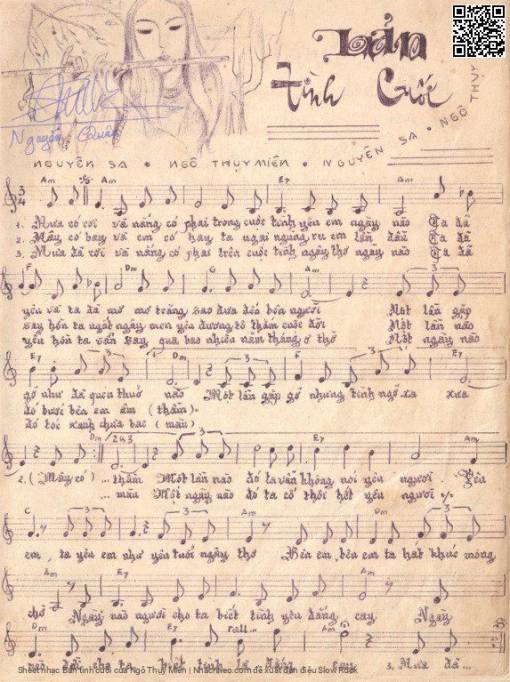 BẢN
Tình Cuối
Nguyễn Quân
NGUYÊN SA • NGÔ THỤY MIÊN • NGUYÊN SA • NGÔ THỤY
Am Am E7 Am
3/4
1. Mưa có rơi và nắng có phai trong cuộc tình yêu em ngày nào Ta đã
2. Mây có bay và em có hay ta ngại ngùng ru em lần đầu Ta đã
3. Mưa đã rơi và nắng có phai trên cuộc tình ngây thơ ngày nào Ta đã
F Dm G Am
yêu và ta đã mơ mơ trăng sao đưa đến bên người Một lần gặp
say hồn ta ngất ngây men yêu đương tô thắm cuộc đời Một lần nào
yêu hồn ta vẫn say, qua bao nhiêu năm tháng Một ngày nào
E7 Dm E7
gỡ như đã quen thuở nào Một lần gặp gỡ nhưng tình ngỡ xa xưa
đó bên em âm (thầm).
đó tóc xanh chưa bạc (màu)
Dm 2&3 E7
2. (Mây có) ... thầm Một lần nào đó ta vẫn không nói yêu người. Yêu
... màu Một ngày nào đó ta có thôi hết yêu người
C Am
em, ta yêu em như yêu tuổi ngây thơ Bên em, bên em ta hát khúc mộng
Am E7 Am
chờ Ngày nào người cho ta biết tình yêu đắng cay Ngày
Dm E7 rall... Am
nào đời cho ta biết tình là 3. Mưa
Sheet nhạc Bản tình cuối của Ngô Thụy Miên | Nhacnheo.com đề xuất đàn điệu Slow Rock